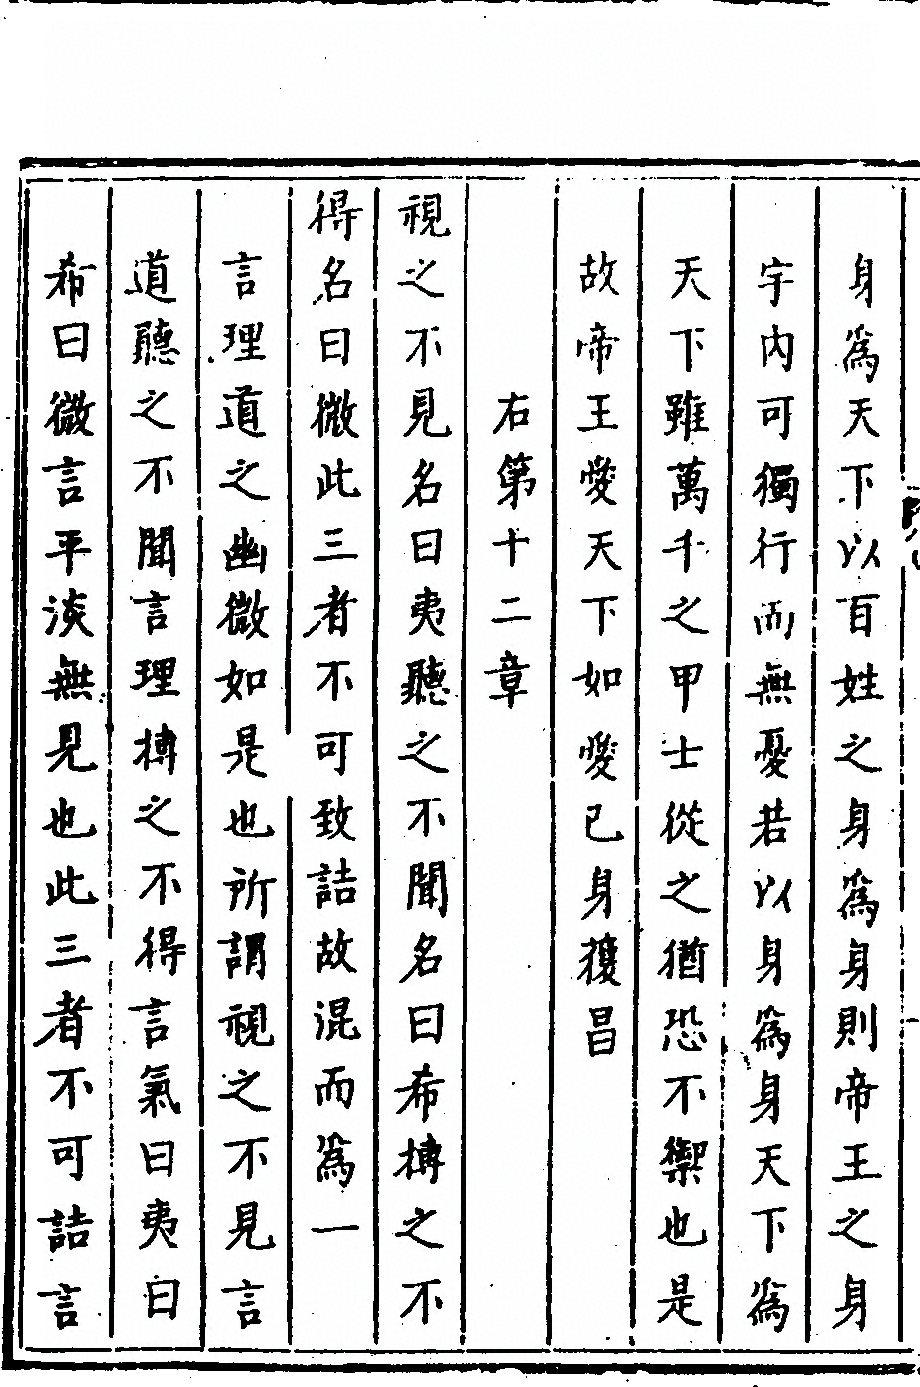 身為天下以百姓之身為身則帝王之身
宇內可獨行而無憂若以身為身天下為
天下雖萬千之甲士從之猶恐不禦也是
故帝王愛天下如愛已身獲昌
右第十二章
視之不見名曰夷聽之不聞名曰希摶之不
得名曰微此三者不可致詰故混而為一
言理道之幽微如是也所謂視之不見言
道聽之不聞言理摶之不得言氣曰夷曰
希曰微言平淡無見也此三者不可詰言